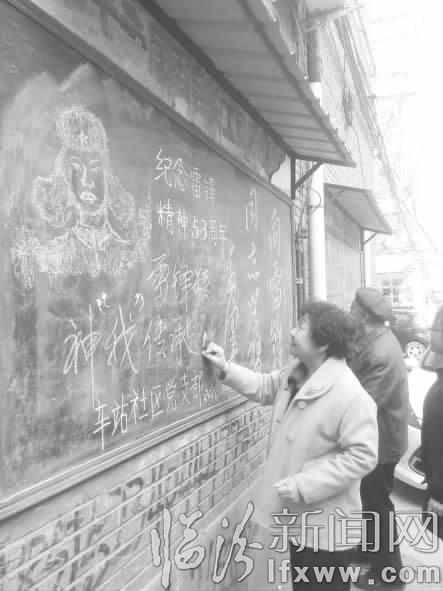 纪念雷锋
精神53周年
雷锋精
神“我”传承
车站社区党支部
向雷锋
同志学习
临汾新闻网
lfxww.com